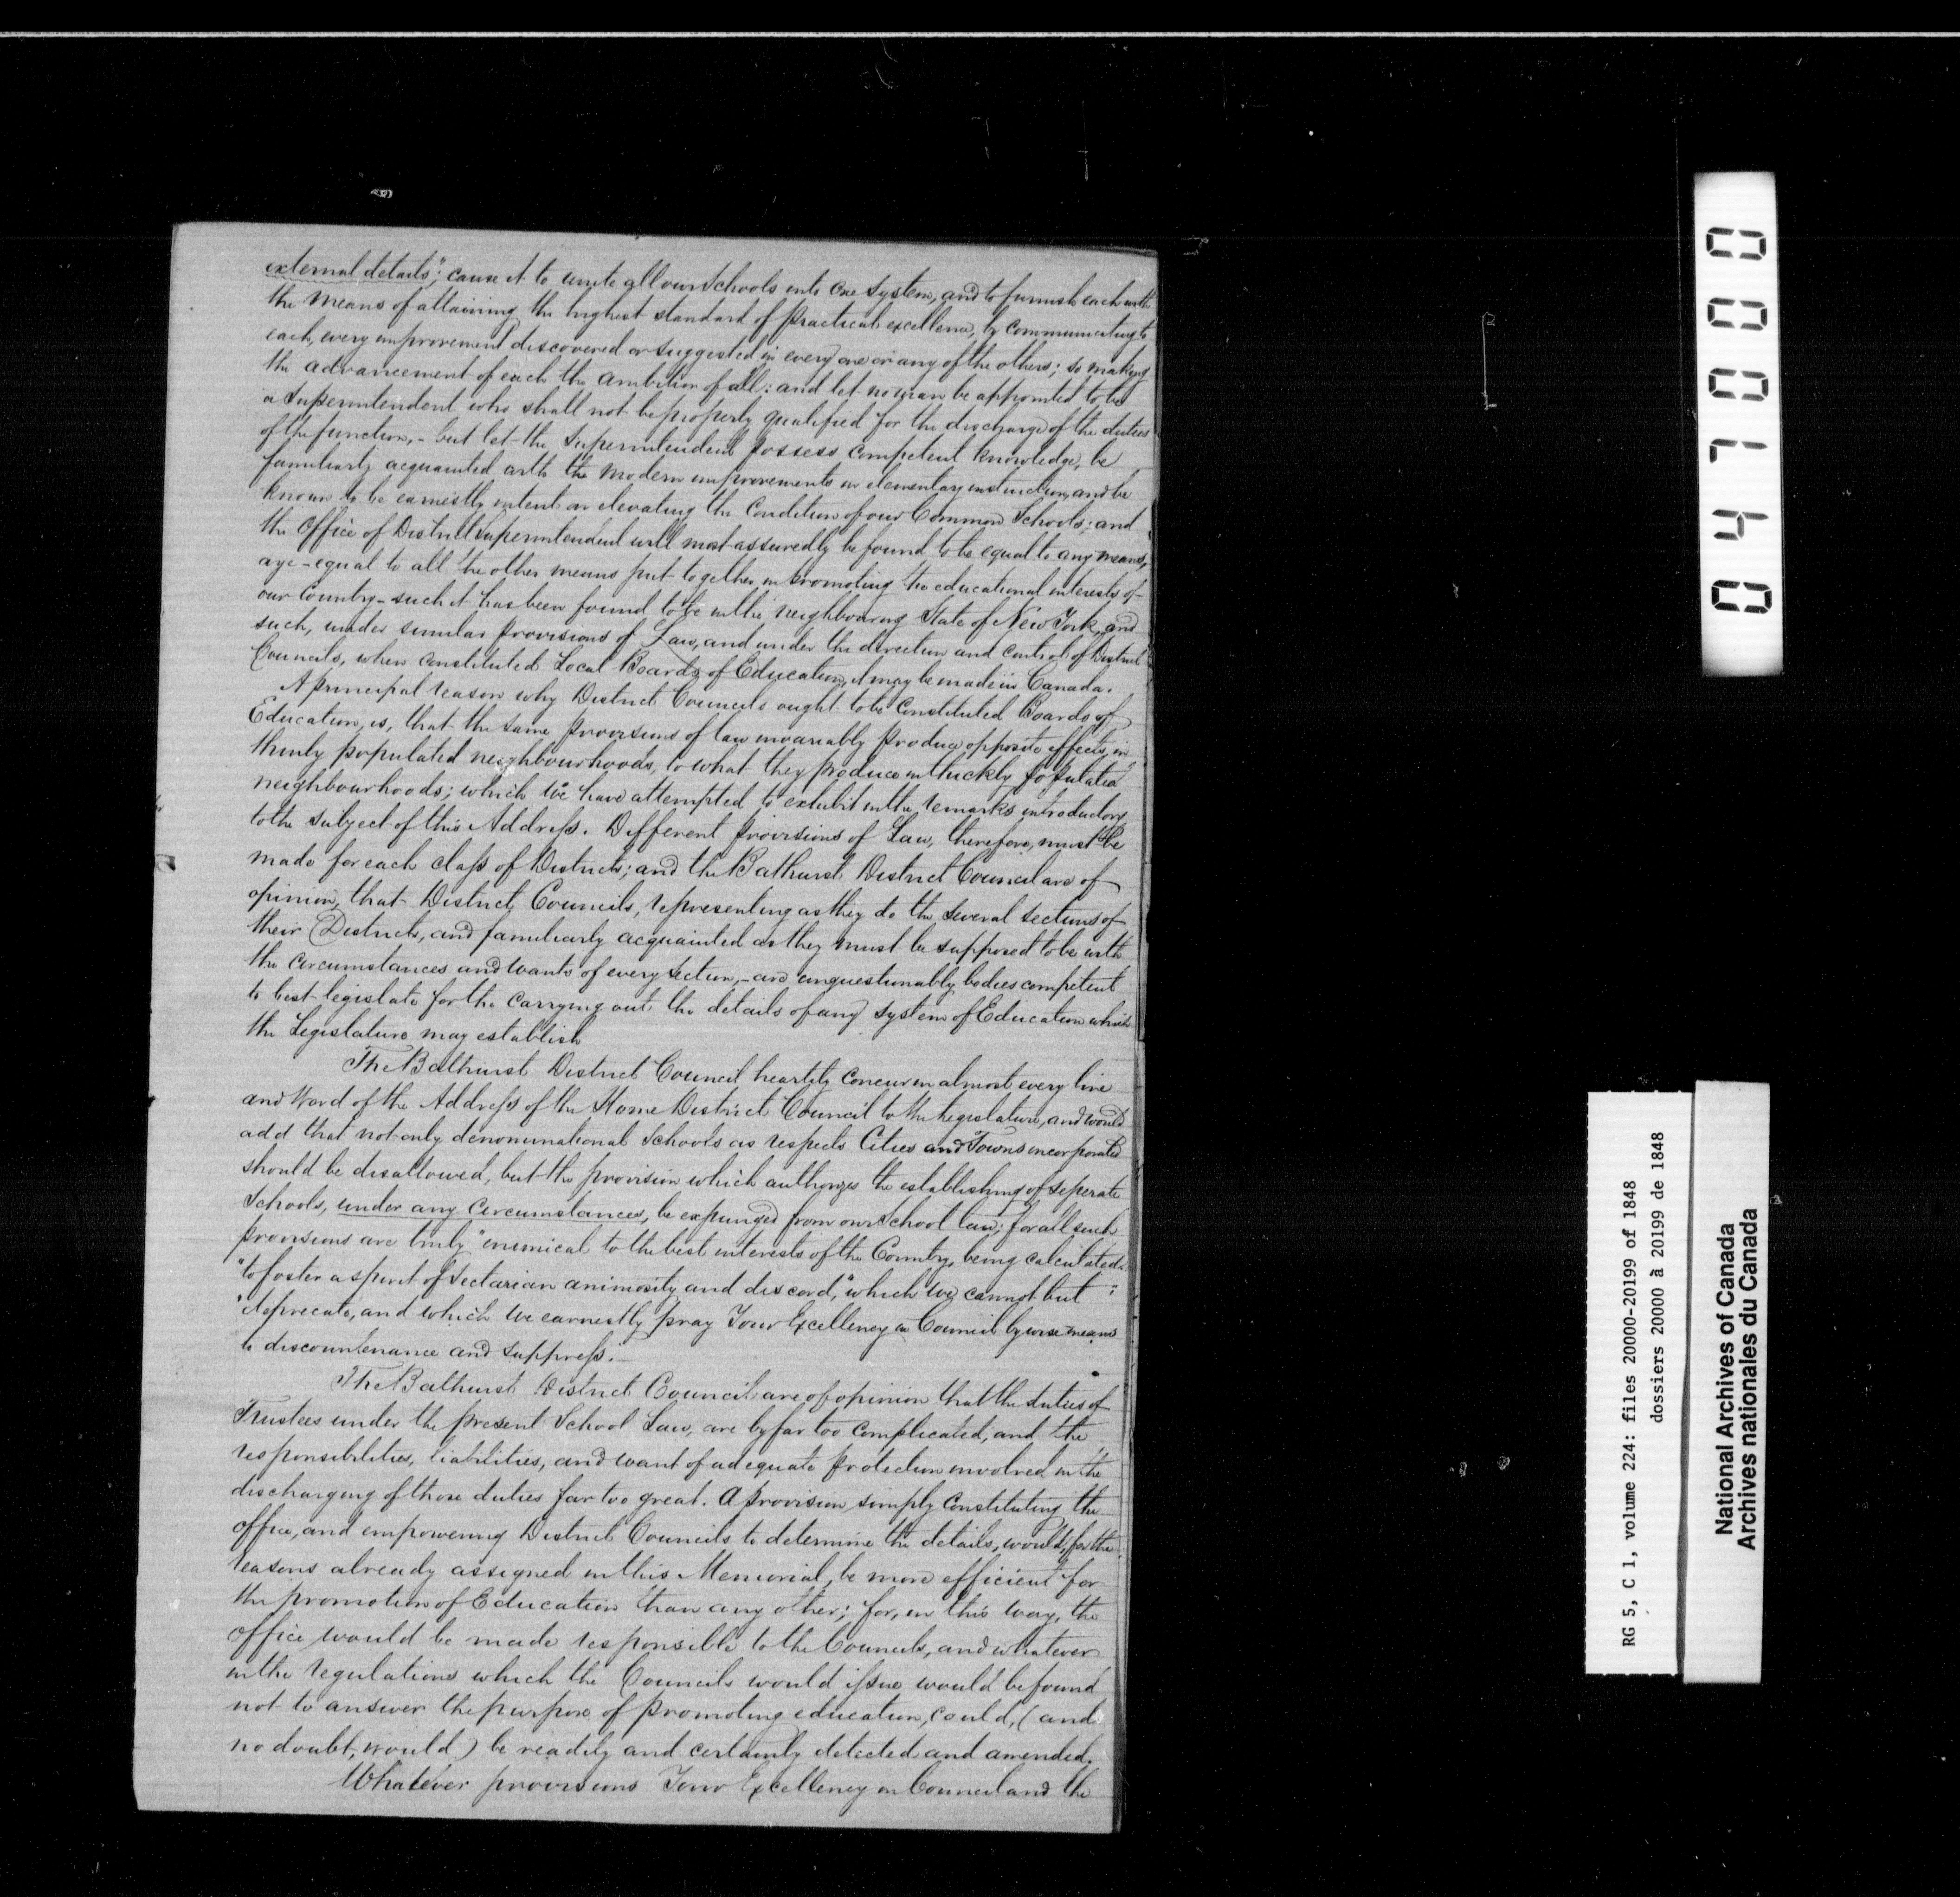 external details"; cause it to unite all our Schools into one System, and to furnish each with
the means of attaining the highest standard of practical excellence, by communicating to
each, every improvement discovered or suggested in every one or any of the others; so making
the advancement of each the ambition of all: and let no man be appointed to be
a Superintendent who shall not be properly qualified for the discharge of the duties
of the function, - but let the Superintendent possess competent knowledge, be
familiarly acquainted with the modern improvements in elementary instruction, and be
known to be earnestly intent on elevating the Condition of our Common Schools; and
the Office of District Superintendent will most assuredly be found to be equal to any means,
aye - equal to all the other means put together in promoting the educational interests of
our Country - such it has been found to be in the neighbouring State of New York, and
such, under similar provisions of Law, and under the direction and control of District
Councils, when constituted Local Boards of Education, it may be made in Canada.
A principal reason why District Councils ought to be Constituted Boards of
Education, is, that the same provisions of law invariably produce opposite effects, in
thinly populated neighbourhoods, to what they produce in thickly populated
neighbourhoods; which we have attempted to exhibit in the remarks introductory
to the subject of this Address. Different provisions of Law, therefore, must be
made for each class of Districts; and the Bathurst District Council are of
opinion, that District Councils, representing as they do the several sections of
their Districts, and familiarly acquainted as they must be supposed to be with
the circumstances and wants of every section, - are unquestionably bodies competent
to best legislate for the carrying out the details of any system of Education which
the Legislature may establish
The Bathurst District Council heartily concur in almost every line
and Word of the Address of the Home District Council to the Legislature, and would
add that not only denominational Schools as respects Cities and Towns incorporated
should be disallowed, but the provision which authorizes the establishing of seperate
Schools, under any Circumstances, be expunged from our School law; for all such
provisions are truly "enimical to the best interests of the Country, being calculated
"to foster a spirit of Sectarian animosity and discord," which we cannot but
"deprecate, and which we earnestly pray Your Excellency in Council by wise means
to discountenance and suppress. -
The Bathurst District Council are of opinion that the duties of
Trustees under the present School Law, are by far too complicated, and the
responsibilities, liabilities, and want of adequate protection involved in the
discharging of those duties far too great. A provision simply Constituting the
office, and empowering District Councils to determine the details, would, for the
reasons already assigned in this Memorial, be more efficient for
the promotion of Education than any other; for, in this way, the
office would be made responsible to the Councils, and whatever
in the regulations which the Councils would issue would be found
not to answer the purpose of promoting education, could, (and
no doubt, would) be readily and certainly detected and amended.
Whatever provisions Your Excellency in Council and the
000740
RG 5, C 1, volume 224: files 20000-20199 of 1848
dossiers 20000 à 20199 de 1848
National Archives of Canada
Archives nationales du Canada